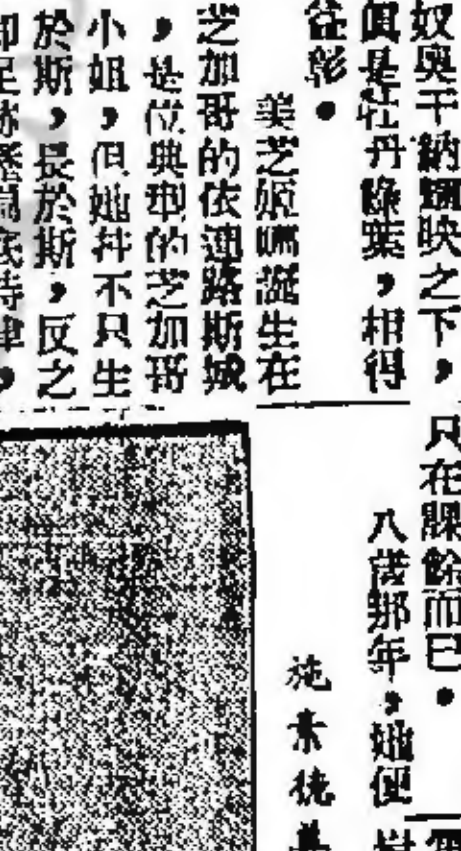 奴奧干納輝映之下，
真是紅牡丹綠葉，相得
益彰。
美芝姬嗎誕生在
芝加哥的依連路斯城
，是位典型的芝加哥
小姐，但她幷不只生
於斯，長於斯，反之
只在課餘而已。
八歲那年，她便
施素德